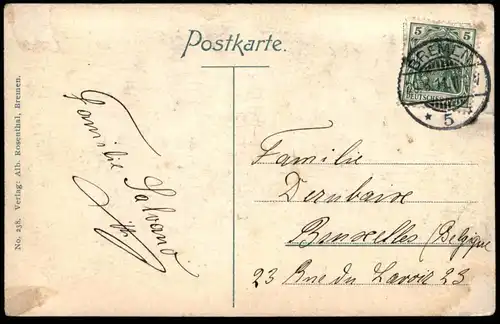 Postkarte.
5 5
BREMEN
DEUTSCHES REICH
* 5
No. 238. Verlag: Alb. Rosenthal, Bremen.
Familie
Salvano
Familie
Bruxelles (Belgique
23 Rue du Lavoir 23